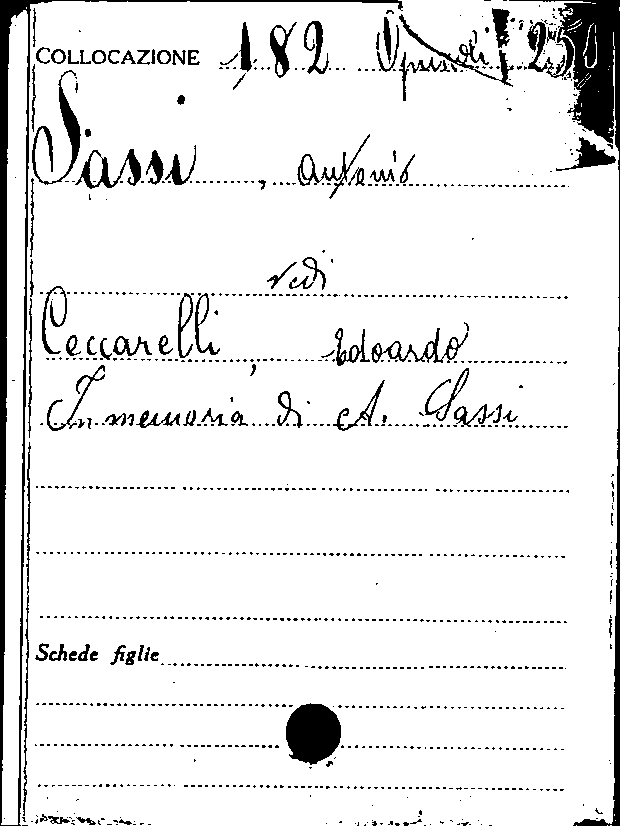 COLLOCAZIONE 182 Opuscoli
Sassi, Antonio
vedi
Ceccarelli, Edoardo
In memoria di A. Sassi
Schede figlie